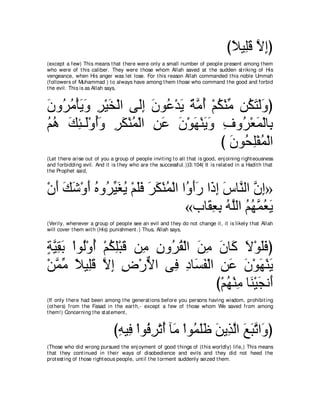 (إِلاَّ قَلِيلاً)
(except a few) This means that there were only a small number of people present among them
who were of this caliber. They were those whom Allah saved at the sudden striking of His
vengeance, when His anger was let lose. For this reason Allah commanded this noble Ummah
(followers of Muhammad ) to always have among them those who command the good and forbid
the evil. This is as Allah says,
(وَلْتَكُن مِّنْكُمْ أُمَّةٌ يَدْعُونَ إِلَى الْخَيْرِ وَيَأْمُرُونَ
بِالْمَعْرُوفِ وَيَنْهَوْنَ عَنِ الْمُنْكَرِ وَأُوْلَـئِكَ هُمُ
الْمُفْلِحُونَ )
(Let there arise out of you a group of people inviting to all that is good, enjoining righteousness
and forbidding evil. And it is they who are the successful.)(3:104( It is related in a Hadith that
the Prophet said,
«إِنَّ النَّاسَ إِذَا رَأَوُا الْمُنْكَرَ فَلَمْ يُغَيِّرُوهُ أَوْشَكَ أَنْ
يَعُمَّهُمُ اللهُ بِعِقَاب»
(Verily, wherever a group of people see an evil and they do not change it, it is likely that Allah
will cover them with (His) punishment.) Thus, Allah says,
(فَلَوْلاَ كَانَ مِنَ الْقُرُونِ مِن قَبْلِكُمْ أُوْلُواْ بَقِيَّةٍ
يَنْهَوْنَ عَنِ الْفَسَادِ فِى الاٌّرْضِ إِلاَّ قَلِيلاً مِّمَّنْ
أَنجَيْنَا مِنْهُمْ)
(If only there had been among the generations before you persons having wisdom, prohibiting
(others) from the Fasad in the earth,- except a few of those whom We saved from among
them!) Concerning the statement,
(وَاتَّبَعَ الَّذِينَ ظَلَمُواْ مَآ أُتْرِفُواْ فِيهِ)
(Those who did wrong pursued the enjoyment of good things of (this worldly) life,) This means
that they continued in their ways of disobedience and evils and they did not heed the
protesting of those righteous people, until the torment suddenly seized them.